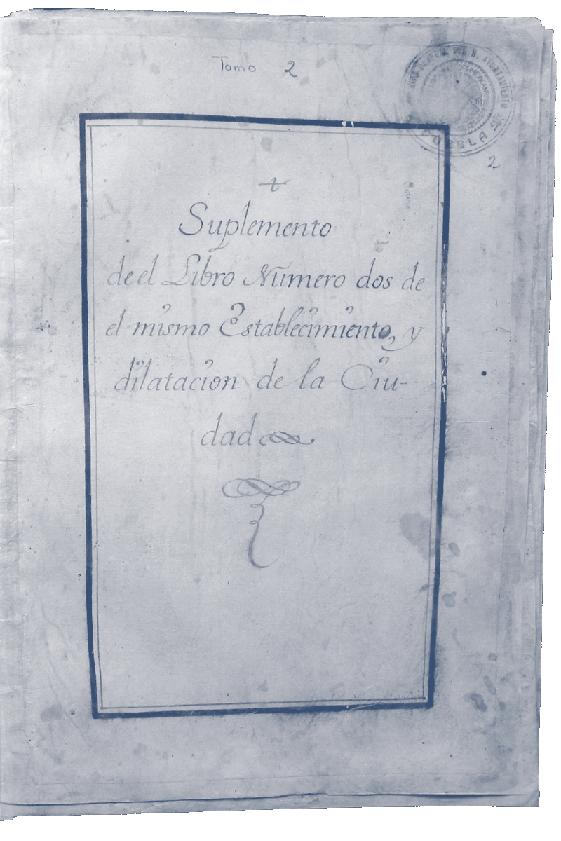 Tomo 2
PUEBLA
2
Suplemento
de el Libro Número dos de
el mismo Establecimiento, y
dilatacion de la Ciu-
dad